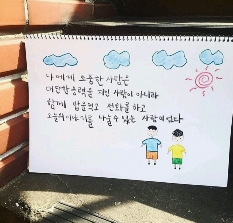 나에게 소중한 사람은
대단한 능력을 지닌 사람이 아니라
함께 밥을 먹고 전화를 하고
오늘의 이야기를 나눌 수 있는 사람이었다